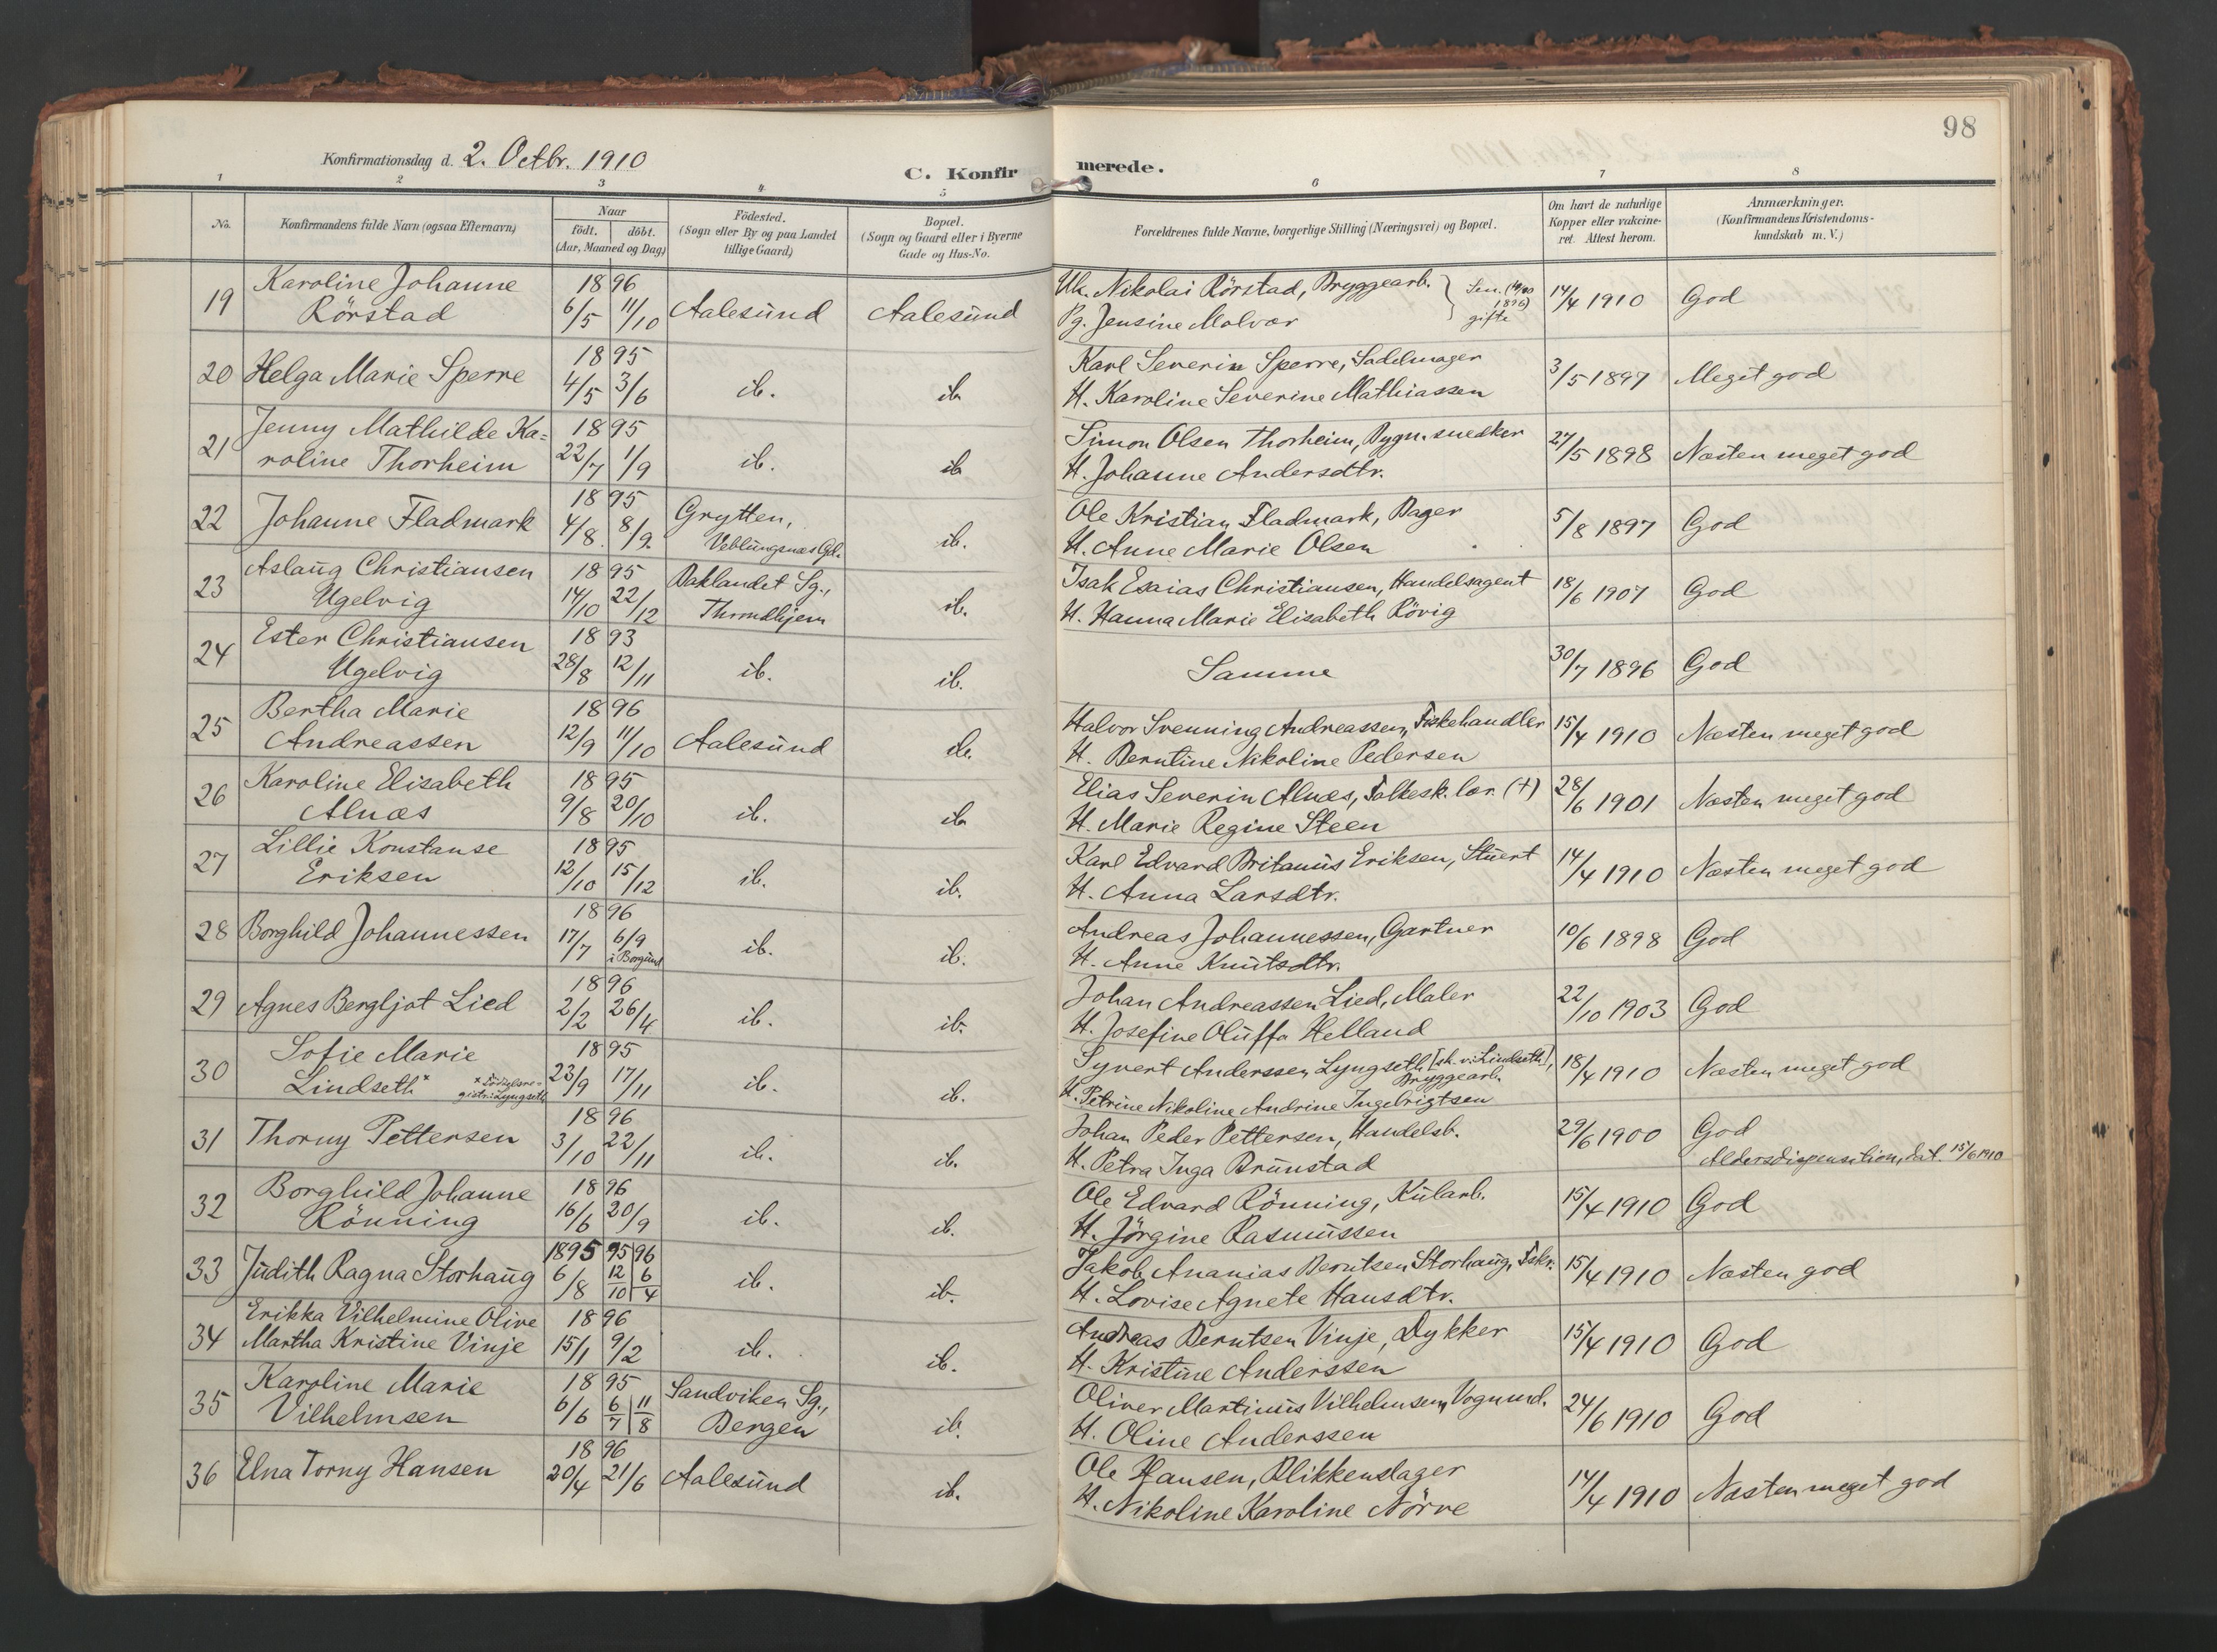 98
Konfirmationsdag d. 2. Octbr. 1910
C. Konfirmerede.
1 2 3 4 5 6 7 8
No. Konfirmandens fulde Navn (ogsaa Efternavn) Naar födt. döbt. (Aar, Maaned og Dag) Födested. (Sogn eller By og paa Landet tillige Gaard) Bopæl. (Sogn og Gaard eller i Byerne Gade og Hus-No. Forældrenes fulde Navne, borgerlige Stilling (Næringsvei) og Bopæl. Om havt de naturlige Kopper eller vakcineret. Attest herom. Anmærkninger. (Konfirmandens Kristendomskundskab m. V.)
19 Karoline Johanne Rörstad 1896 6/5 11/10 Aalesund Aalesund Uk. Nikolai Rörstad, Bryggearb. Pg. Jensine Molvær } Sen. 1896) gifte 14/4 1910 God
20 Helga Marie Sperre 1895 4/5 3/6 ib. ib Karl Severin Sperre, Sadelmager H. Karoline Severine Mathiassen 3/5 1897 Meget god
21 Jenny Mathilde Ka= roline Thorheim 1895 22/7 1/9 ib. ib Simon Olsen Thorheim, Bygn. snedker H. Johanne Andersdtr. 27/5 1898 Næsten meget god
22 Johanne Fladmark 1895 4/8. 8/9. Grytten, Veblungsnæs Gd. ib. Ole Kristian Fladmark, Bager H. Anne Marie Olsen 5/8 1897 God
23 Aslaug Christiansen Ugelvig 1895 14/10 22/12 Baklandet Sg., Throndhjem ib. Isak Esaias Christiansen, Handelsagent H. Hanna Marie Elisabeth Rövig 18/6 1907 God
24 Ester Christiansen Ugelvig 1893 28/8 12/11 ib. ib. Samme 30/7 1896 God
25 Bertha Marie Andreassen 1896 12/9 11/10 Aalesund do. Halvor Svenning Andreassen, Fiskehandler H. Berntine Nikoline Pedersen 15/4 1910 Næsten meget god
26 Karoline Elisabeth Alnæs 1895 9/8 20/10 ib. ib Elias Severin Alnæs, Folkesk. lær. (+) H. Marie Regine Steen 28/6 1901 Næsten meget god
27 Lillie Konstanse Eriksen 1895 12/10 15/12 ib. ib. Karl Edvard Britanus Eriksen, Stuert H. Anna Larsdtr. 14/4 1910 Næsten meget god
28 Borghild Johannessen 1896 17/7 6/9 i Borgund ib. ib. Andreas Johannessen, Gartner H. Anne Knutsdtr. 10/6 1898 God
29 Agnes Bergljot Lied 1896 2/2 26/4 ib. ib. Johan Andreassen Lied, Maler H. Josefine Oluffa Helland 22/10 1903 God
30 Sofie Marie Lindseth* * Födselsre= gistr: Lyngseth 1895 23/9 17/11 ib. ib. Syvert Anderssen Lyngseth [sk. v. Lindseth], Bryggearb. H. Petrine Nikoline Andrine Ingebrigtsen 18/4 1910 Næsten meget god
31 Thorny Pettersen 1896 3/10 22/11 ib. ib. Johan Peder Pettersen, Handelsb. H. Petra Inga Brunstad 29/6 1900 God Aldersdispensation, dat. 15/6 1910
32 Borghild Johanne Rönning 1896 16/6 20/9 ib. ib. Ole Edvard Rönning, Kularb. H. Jörgine Rasmussen 15/4 1910 God
33 Judith Ragna Storhaug 1895 6/8 95 12/10 96 6/4 ib. ib. Jakob Ananias Berntsen Storhaug, Fskr. H. Lovise Agnete Hansdtr. 15/4 1910 Næsten god
34 Erikka Vilhelmine Olive Martha Kristine Vinje 1896 15/1 9/2 ib. ib. Andreas Berntsen Vinje, Dykker H. Kristine Anderssen 15/4 1910 God
35 Karoline Marie Vilhelmsen 1895 6/6 6/7 11/8 Sandviken Sg., Bergen ib. Oliver Martinus Vilhelmsen, Vognmd. H. Oline Anderssen 24/6 1910 God
36 Elna Torny Hansen 1896 20/4 21/6 Aalesund ib. Ole Hansen, Blikkenslager H. Nikoline Karoline Nörve 14/4 1910 Næsten meget god